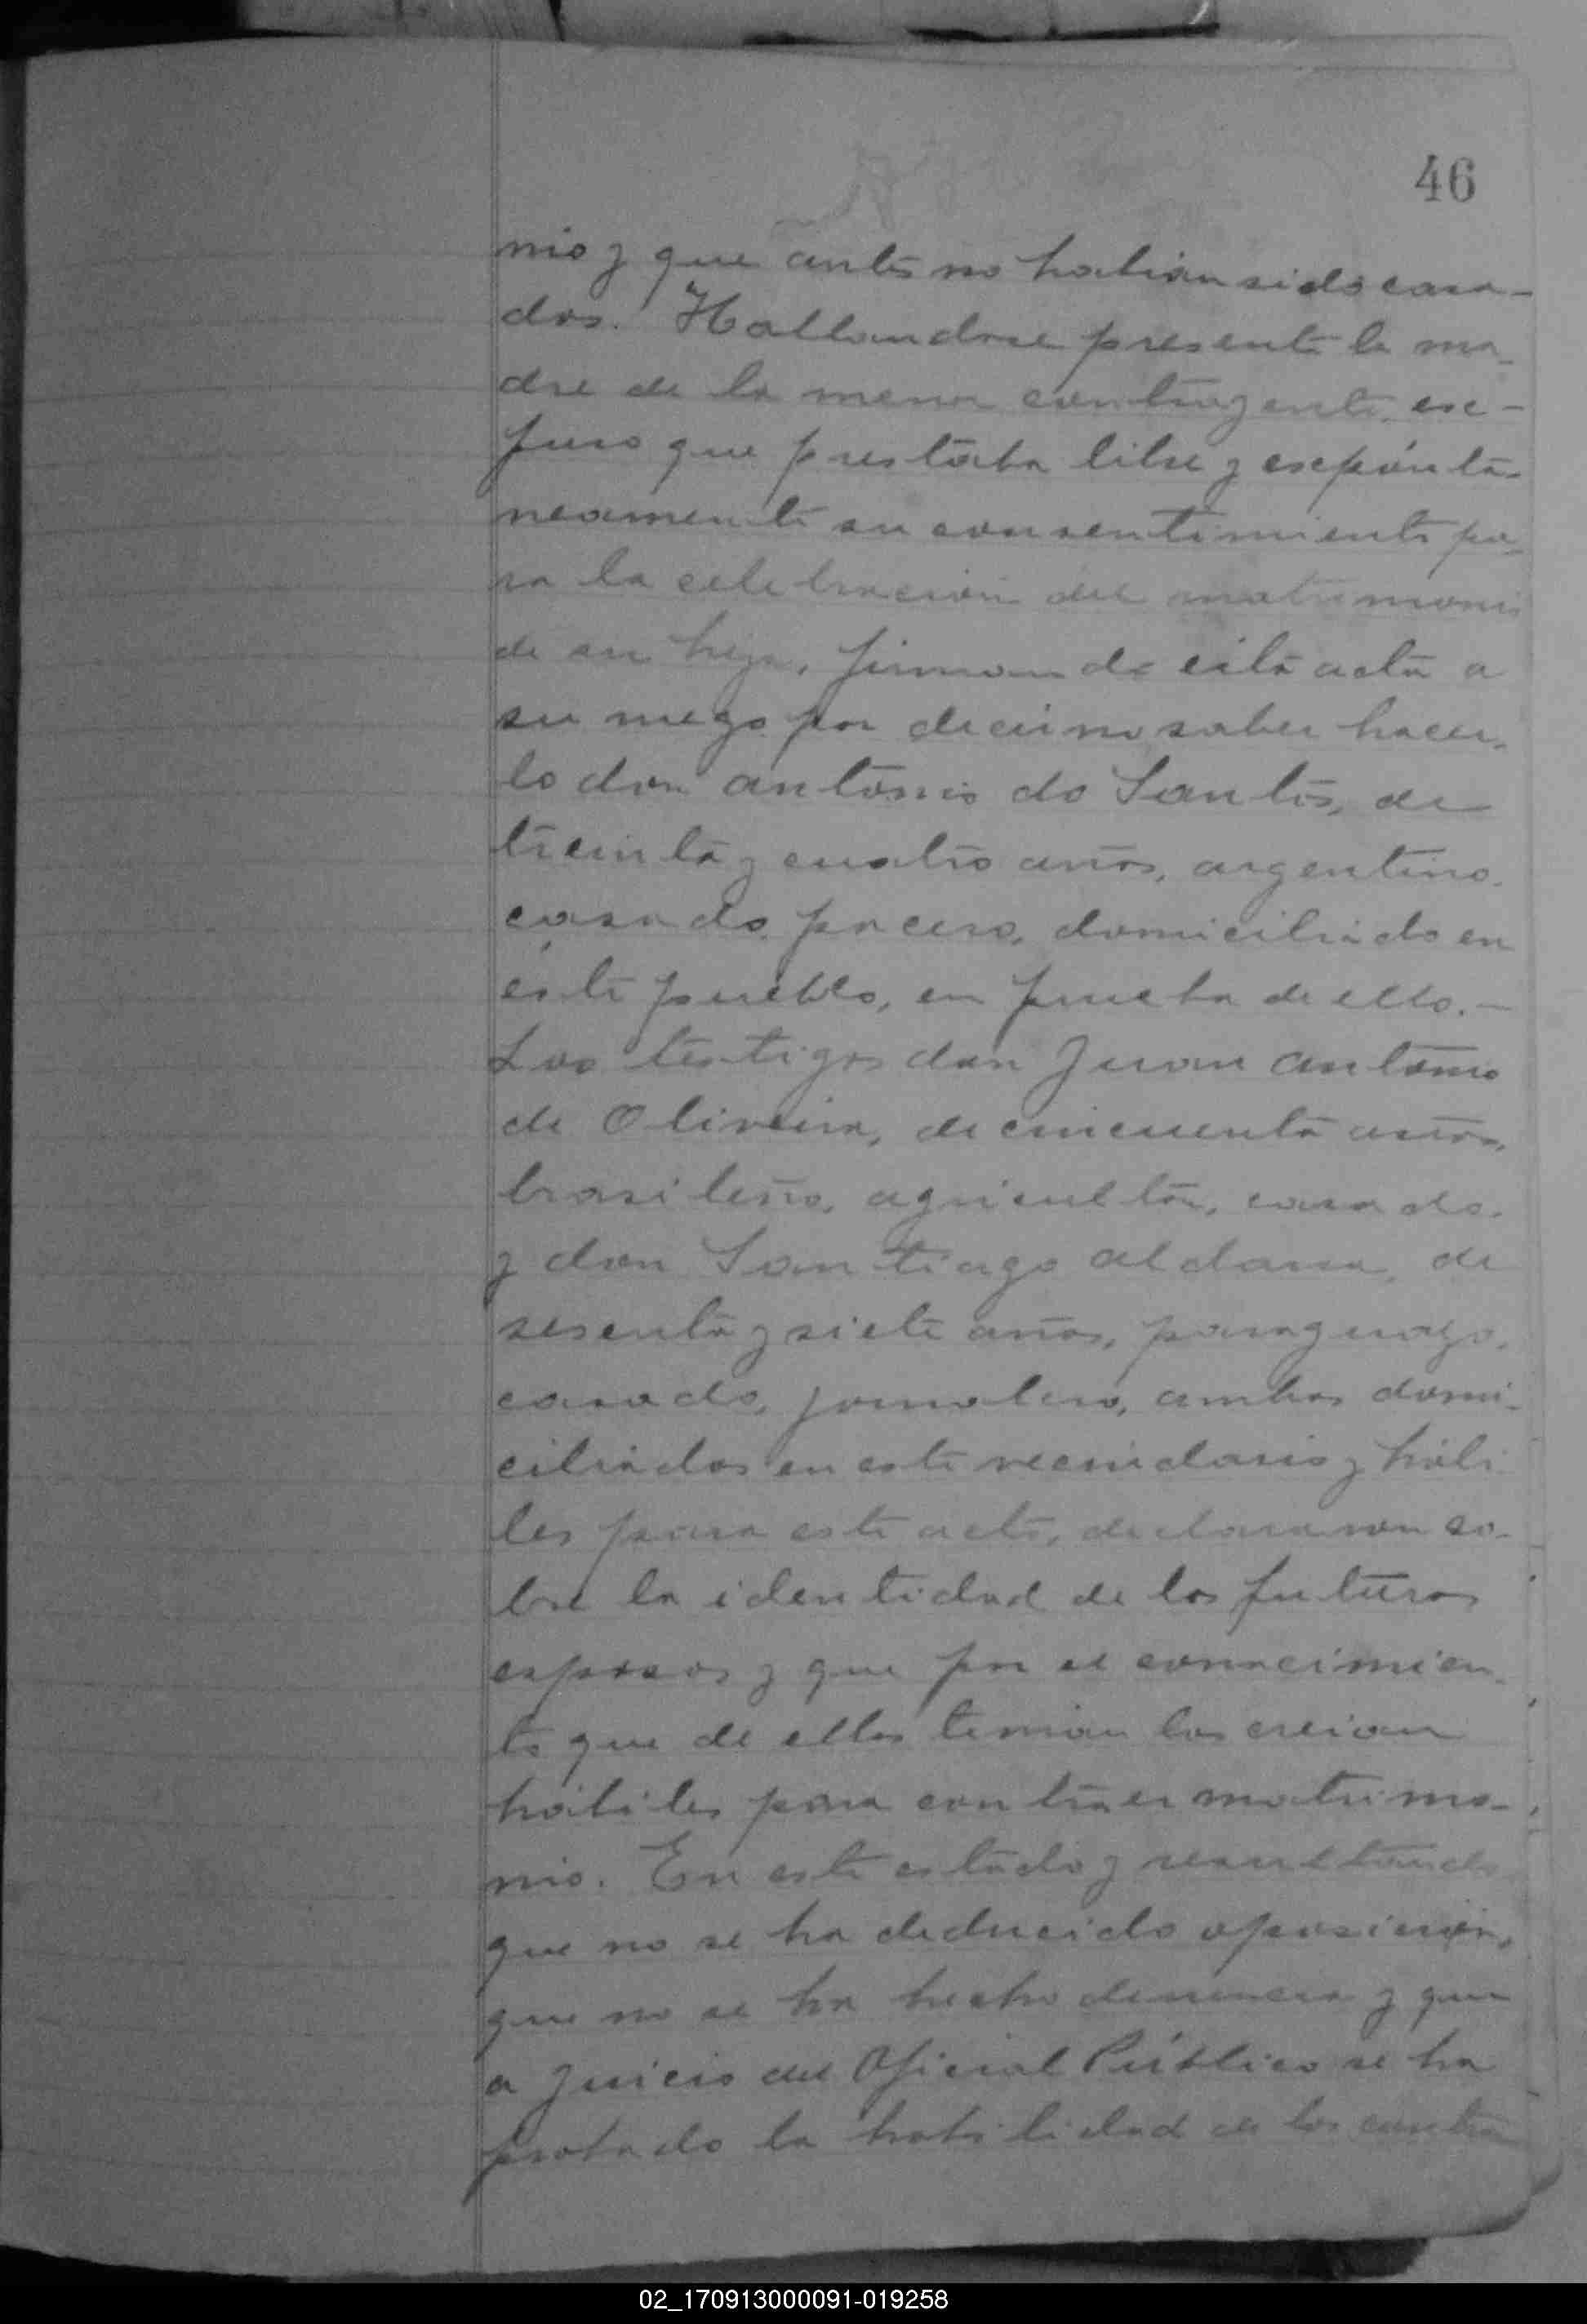 46
nio y que antes no habían sido casa-
dos. Hallandose presente la ma-
dre de la menor contrayente, ex-
puso que prestaba libre y expontá-
neamente su consentimiento pa-
ra la celebración del matrimonio
de su hija, firmando esta acta a
su ruego por decir no saber hacer-
lo don Antonio do Santos, de
treinta y cuatro años, argentino,
casado, domiciliado en
este pueblo, en prueba de ello.-
Los testigos don Juan Antonio
de Oliveira, de cincuenta años,
brasileño, agricultor, casado,
y don Santiago Aldana, de
sesenta y siete años, paraguayo,
casado, jornalero, ambos domi-
ciliados en este vecindario y hábi-
les para este acto, declararon so-
bre la identidad de los futuros
esposos y que por el conocimien-
to que de ellos tenian los creian
hábiles para contraer matrimo-
nio. En este estado y resultando
que no se ha deducido oposición,
que no se ha hecho denuncia y que
a juicio del Oficial Público se ha
probado la habilidad de los contra
02_170913000091-019258